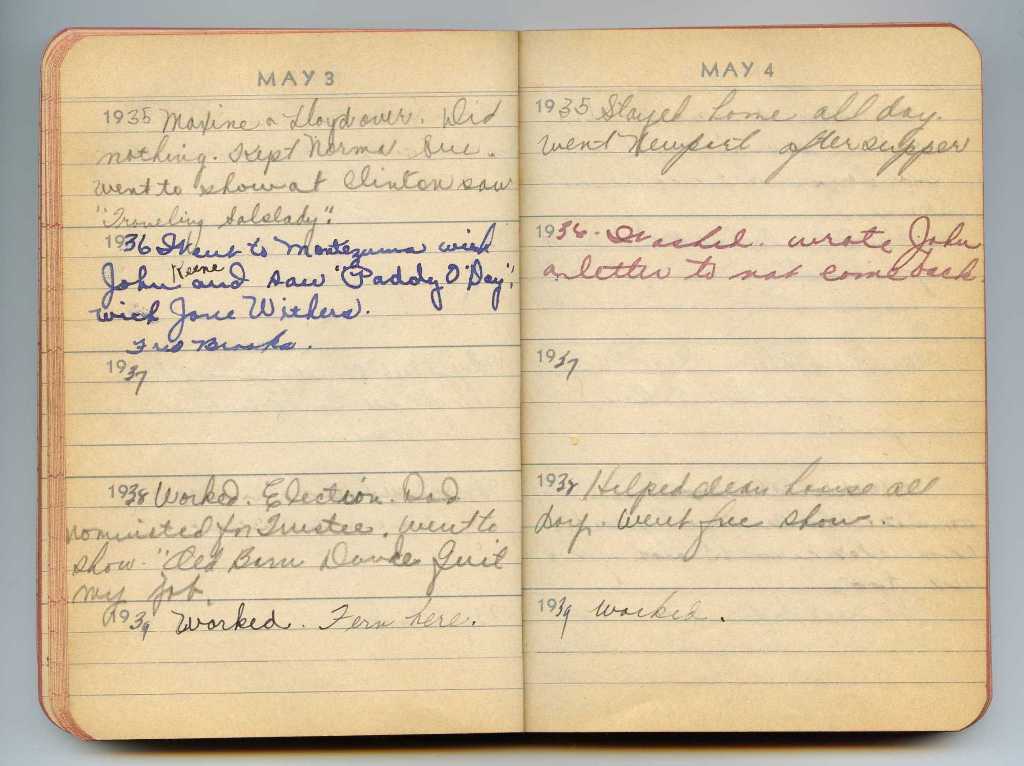 MAY 3
1935 Maxine & Lloyd over. Did
nothing. Kept Norma Sue.
Went to show at Clinton saw
"Traveling Saleslady".
1936 Went to Montezuma with
John Keene and saw "Paddy O'Day".
with Jane Withers.
1937
1938 Worked. Election. Dad
nominated for Trustee. Went to
show. "Old Barn Dance Quit
my job.
1939 Worked. Fern here.
MAY 4
1935 Stayed home all day.
Went Newport after supper
1936. Washed. wrote John
a letter to not come back.
1937
1938 Helped clean house all
day. Went free show.
1939 Worked.